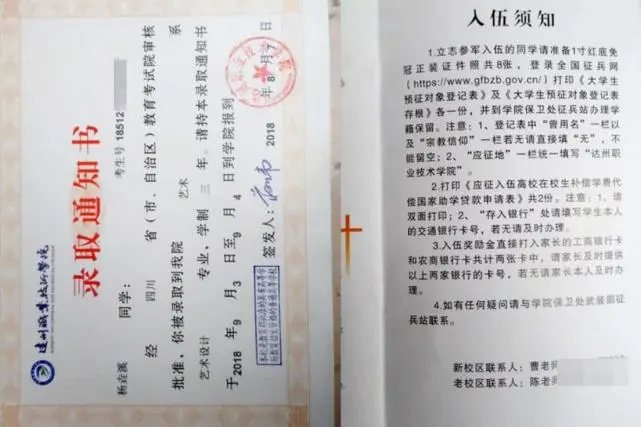 达州职业技术学院
录取通知书
考生号 18512
杨垚溪 同学:
经 四川 省(市、自治区)教育考试院审核
批准,你被录取到我院 艺术 系
艺术设计 专业,学制 三 年。请持本录取通知书
于2018 年 9 月 3 日至 9 月 4 日到学院报到
签发人:
2018 年 8 月 7 日
入伍须知
1.立志参军入伍的同学请准备1寸红底免
冠正装证件照共8张,登录全国征兵网
(https://www.gfbzb.gov.cn/)打印《大学生
预征对象登记表》及《大学生预征对象登记表
存根》各一份,并到学院保卫处征兵站办理学
籍保留。注意:1、登记表中“曾用名”一栏以
及“宗教信仰”一栏若无请直接填“无”,不
能留空;2、“应征地”一栏统一填写“达州职
业技术学院”。
2.打印《应征入伍高校在校生补偿学费代
偿国家助学贷款申请表》共2份。注意:1、请
双面打印;2、“存入银行”处请填写学生本人
的交通银行卡号,若无请及时办理。
3.入伍奖励金直接打入家长的工商银行卡
和农商银行卡共计两张卡中,请家长及时提供
以上两家银行的卡号,若无请家长本人及时办
理。
4.如有任何疑问请与学院保卫处武装部征
兵站联系。
新校区联系人:曹老师
老校区联系人:陈老师